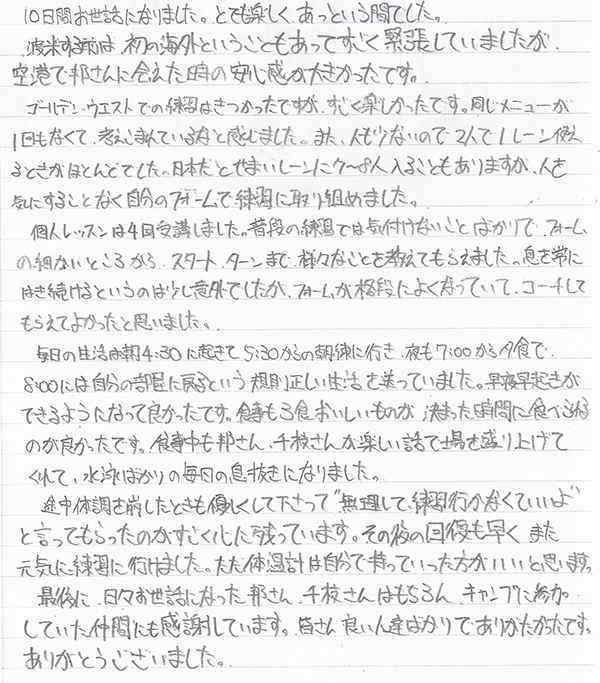 10日間お世話になりました。とても楽しく、あっという間でした。
渡米する前は、初の海外ということもあってすごく緊張していましたが
空港で邦さんに会えた時の安心感が大きかったです。
ゴールデン・ウエストでの練習はきつかったですが、すごく楽しかったです。同じメニューが
1回もなくて、考えこまれているなと感じました。また、人も少ないので2人で1レーン使え
るときがほとんどでした。日本だとせまいレーンに7〜8人入ることもありますが、人を
気にすることなく自分のフォームで練習に取り組めました。
個人レッスンは4回受講しました。普段の練習では気付けないことばかりで、フォーム
の細かいところから、スタート、ターンまで、様々なことを教えてもらえました。息を常に
はき続けるというのは少し意外でしたが、フォームが格段によくなっていて、コーチして
もらえてよかったと思いました。
毎日の生活は朝4:30に起きて5:30からの朝練に行き、夜も7:00から夕食で、
8:00には自分の部屋に戻るという規則正しい生活を送っていました。早寝早起きが
できるようになって良かったです。食事も3食おいしいものが、決まった時間に食べられる
のが良かったです。食事中も邦さん、千枝さんが楽しい話で場を盛り上げて
くれて、水泳ばかりの毎日の息抜きになりました。
途中体調を崩したときも優しくして下さって"無理して練習行かなくていいよ"
と言ってもらったのがすごく心に残っています。その後の回復も早く、また
元気に練習に行けました。ただ体温計は自分で持っていった方がいいと思います。
最後に、日々お世話になった邦さん、千枝さんはもちろん、キャンプに参加
していた仲間にも感謝しています。皆さん良い人達ばかりでありがたかったです。
ありがとうございました。